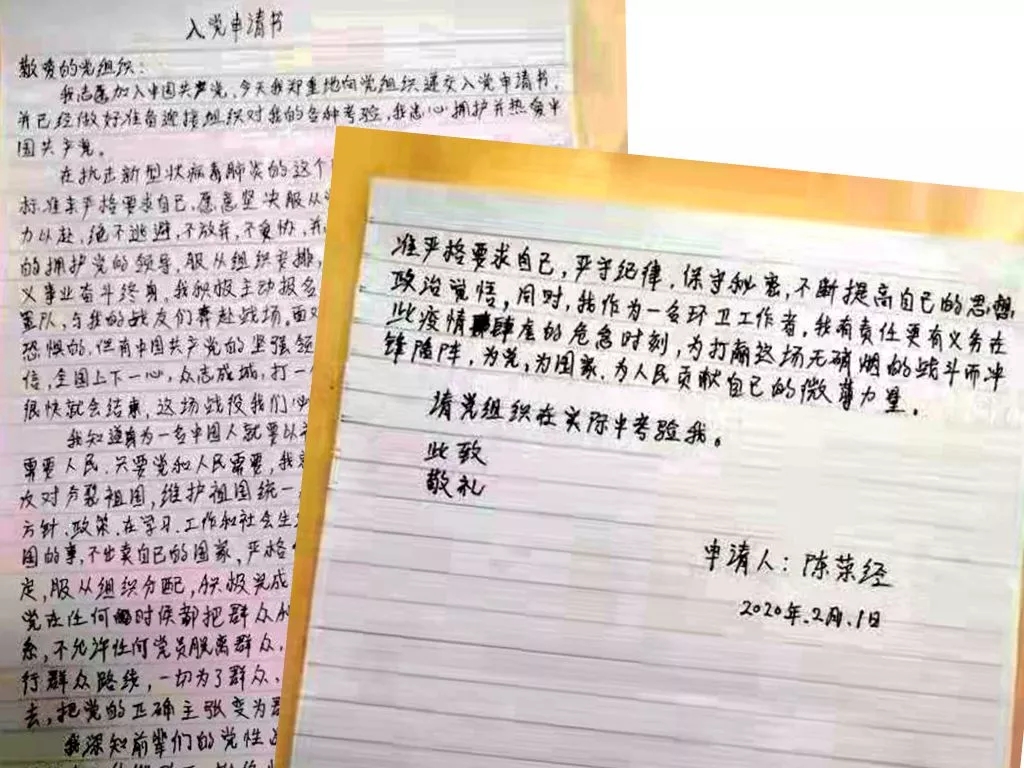 入党申请书
敬爱的党组织：
我志愿加入中国共产党，今天我郑重地向党组织递交入党申请书，
并已经做好准备迎接组织对我的各种考验，我忠心拥护并热爱中
国共产党。
在抗击新型状病毒肺炎的这个
标准来严格要求自己，愿意坚决服从
力以赴，绝不逃避，不放弃，不妥协，并
的拥护党的领导，服从组织安排，
义事业奋斗终身。我积极主动报名
军队，与我的战友们奔赴战场。面对
恐惧的，但有中国共产党的坚强领
信，全国上下一心，众志成城，打一
很快就会结束，这场战役我们必
我知道身为一名中国人就要以
需要人民，只要党和人民需要，我
反对分裂祖国，维护祖国统一
方针、政策，在学习、工作和社会生
国的事，不出卖自己的国家，严格
定，服从组织分配，积极完成
党在任何时候都把群众
系，不允许任何党员脱离群众，
行群众路线，一切为了群众，
去，把党的正确主张变为群
我深知前辈们的党性
准严格要求自己，严守纪律，保守秘密，不断提高自己的思想
政治觉悟，同时，我作为一名环卫工作者，我有责任更有义务在
此疫情肆虐的危急时刻，为打赢这场无硝烟的战斗而冲
锋陷阵，为党，为国家，为人民贡献自己的微薄力量。
请党组织在实际中考验我。
此致
敬礼
申请人：陈荣经
2020年.2月.1日